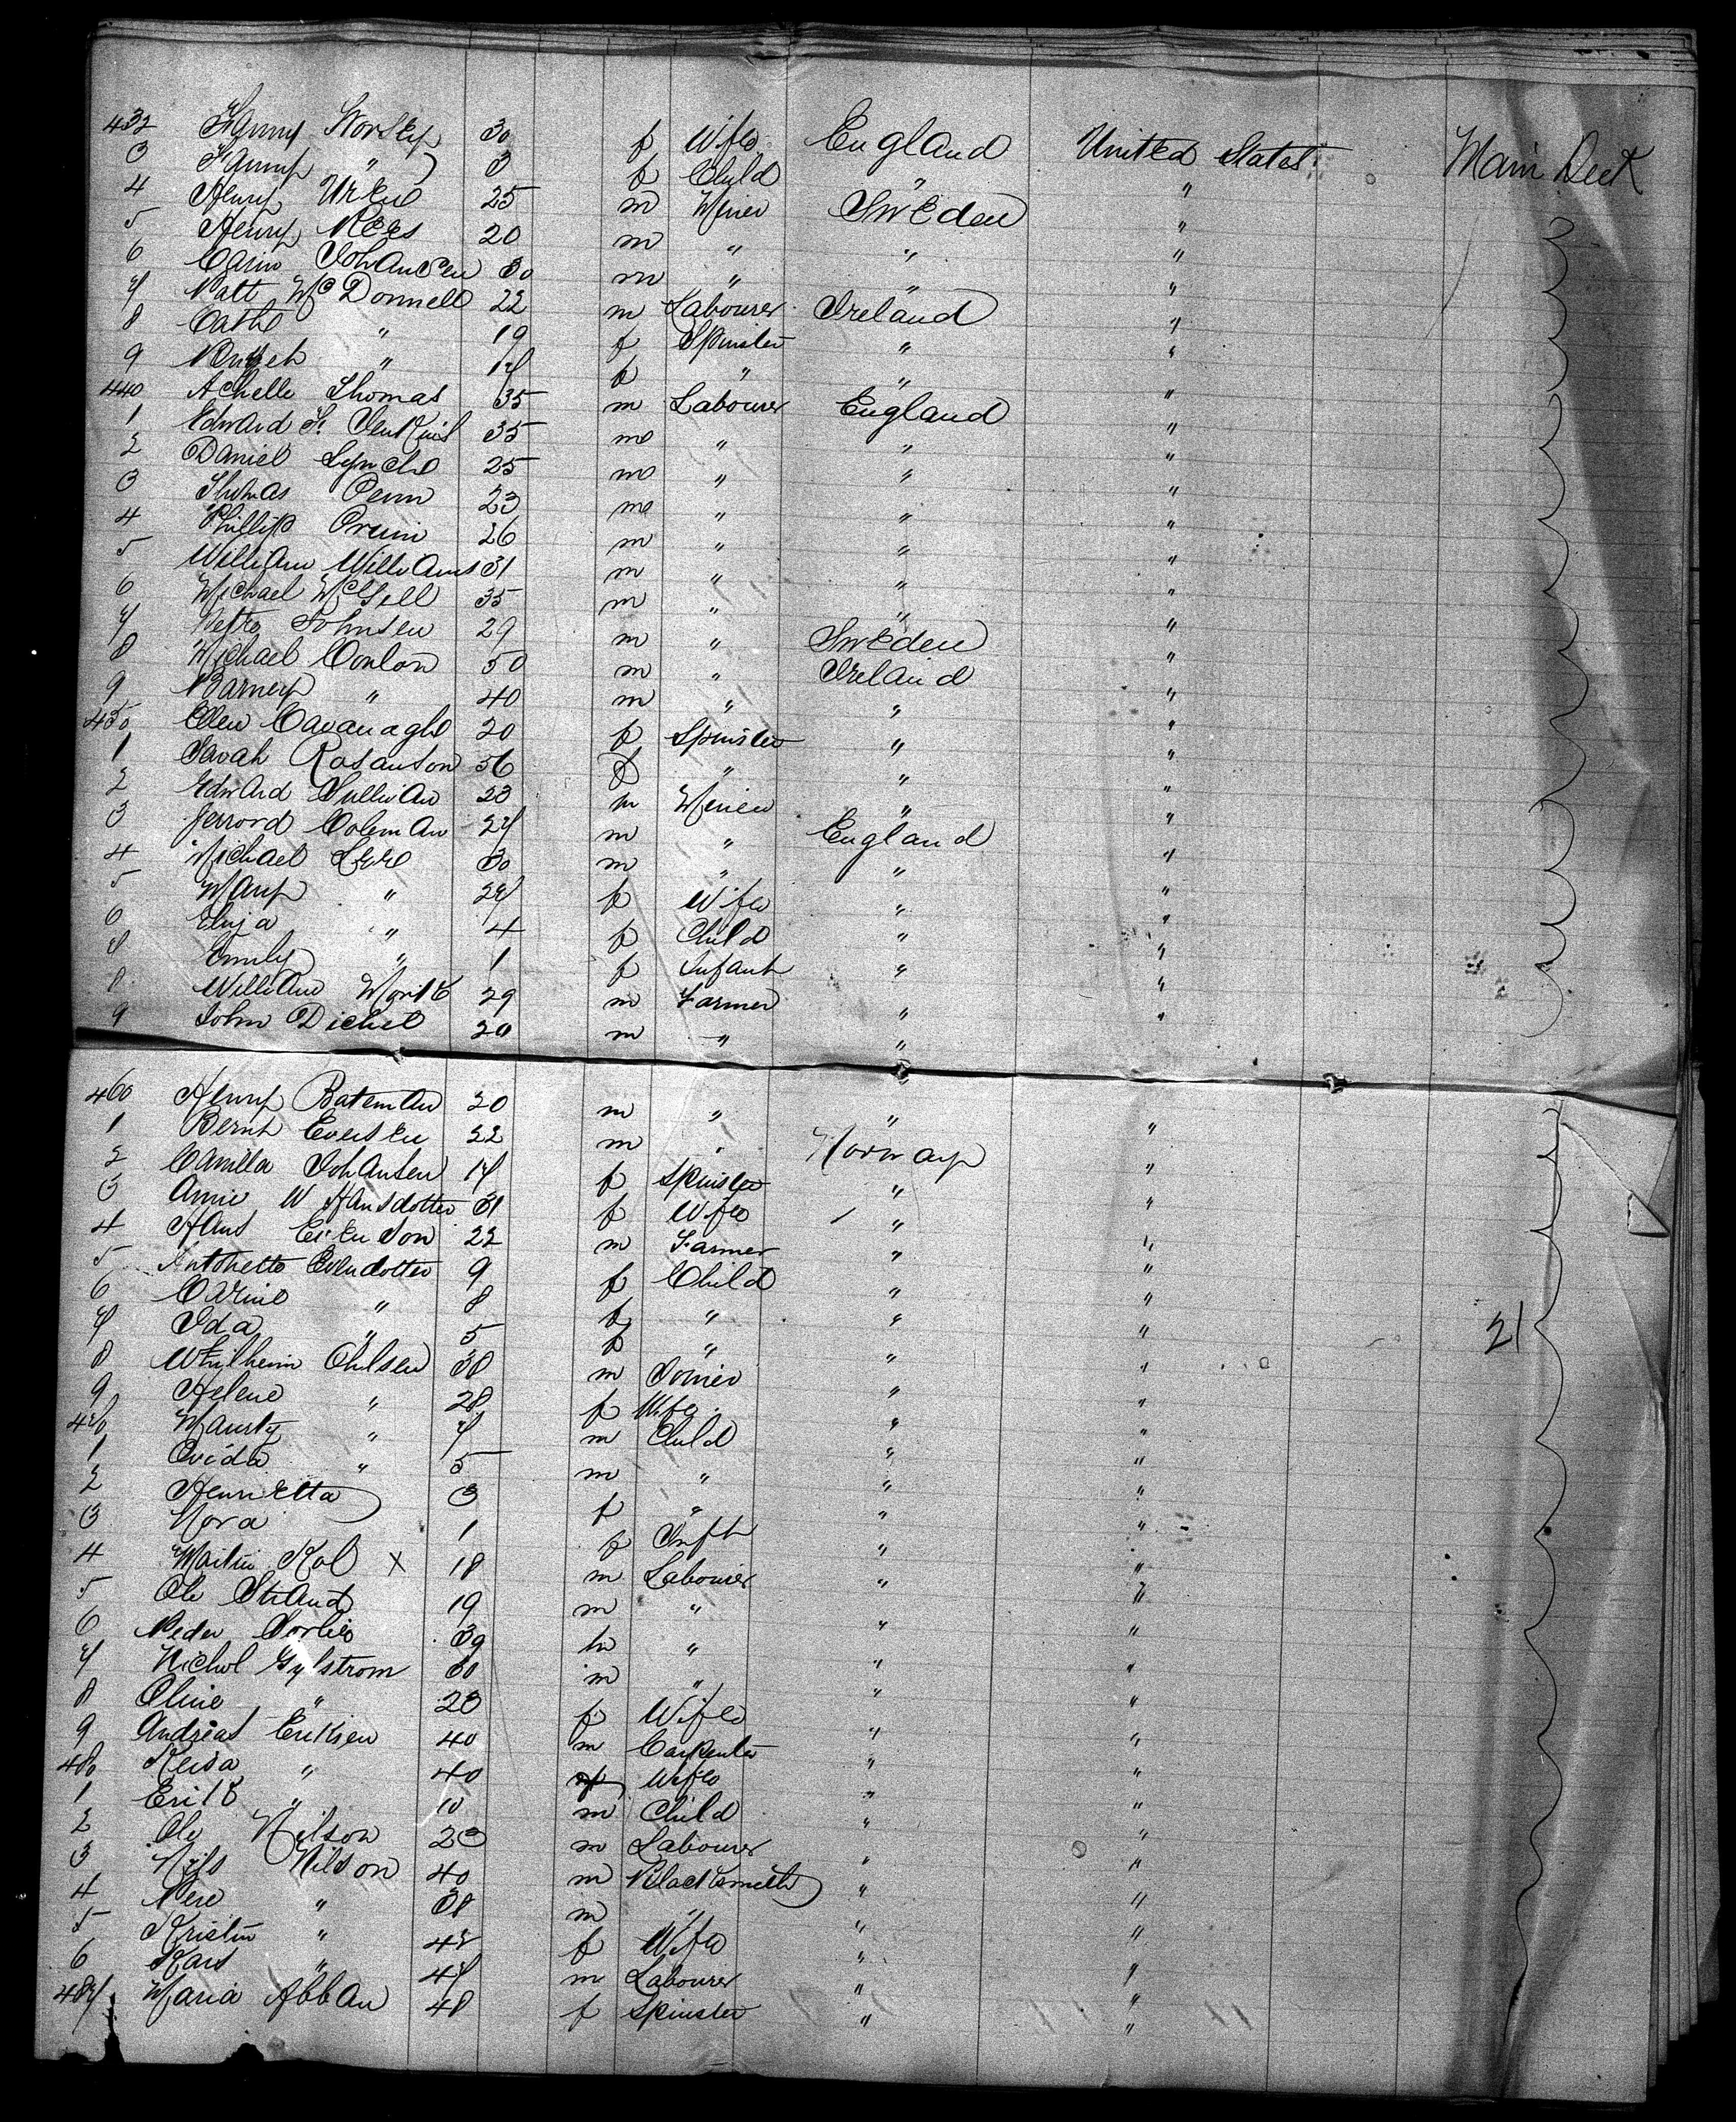 432 Fanny Worsley 30 f Wife England United States Main Deck
3 Fanny " 3 f Child " "
4 Henry 25 m Miner Sweden "
5 Henry Rees 20 m " " "
6 Johansen 30 m " " "
7 Patt McDonnell 22 m Labourer Ireland "
8 Cathe " 19 f Spinster " "
9 " 17 f " " "
440 Achelle Thomas 35 m Labourer England "
1 Edward F. Jenkins 35 m " " "
2 Daniel Lynche 25 m " " "
3 Thomas Penn 23 m " " "
4 Phillip 26 m " " "
5 William Williams 31 m " " "
6 Michael McGill 35 m " " "
7 Johnsen 29 m " Sweden "
8 Michael Conlon 50 m " Ireland "
9 Barney " 40 m " " "
450 Ellen Cavanaghe 20 f Spinster " "
1 Sarah Rosanson 36 f " " "
2 Edward Sullivan 23 m Miner " "
3 Jerrord Coleman 27 m " England "
4 Michael 30 m " " "
5 Mary " 27 f Wife " "
6 Eliza " 4 f Child " "
7 Emily " 1 f Infant " "
8 William 29 m Farmer " "
9 John Dichel 20 m " "
460 Henry Bateman 20 m " " "
1 Bernt Eversen 22 m " Norway "
2 Camilla Johansen 17 f Spinster " "
3 Annie W Hansdotter 31 f Wife " "
4 Hans 22 m Farmer " "
5 Antonette Evendotter 9 f Child " "
6 Carine " 8 f " " "
7 Ida " 5 f " " "
8 Whilheim Ohlsen 38 m Joiner " "
9 Helene " 28 f Wife " "
470 " 7 m Child " "
1 Ovida " 5 m " " "
2 Henrietta 3 f " " "
3 Nora 1 f Inft " "
4 Martin Kol x 18 m Labourer " "
5 Ole Strand 19 m " " "
6 Peder Sorlie 39 m " " "
7 Nichol Gylstrom 30 m " " "
8 Oline " 23 f Wife " "
9 Andreas Eriksen 40 m Carpenter " "
480 " 40 f Wife " "
1 Erik " 10 m Child " "
2 Ole Nilson 23 m Labourer " "
3 Nils Nilson 40 m Blacksmith " "
4 " 38 m " " "
5 Kristin " 42 f Wife " "
6 " 47 m Labourer " "
487 Maria Abban 48 f Spinster " "
21